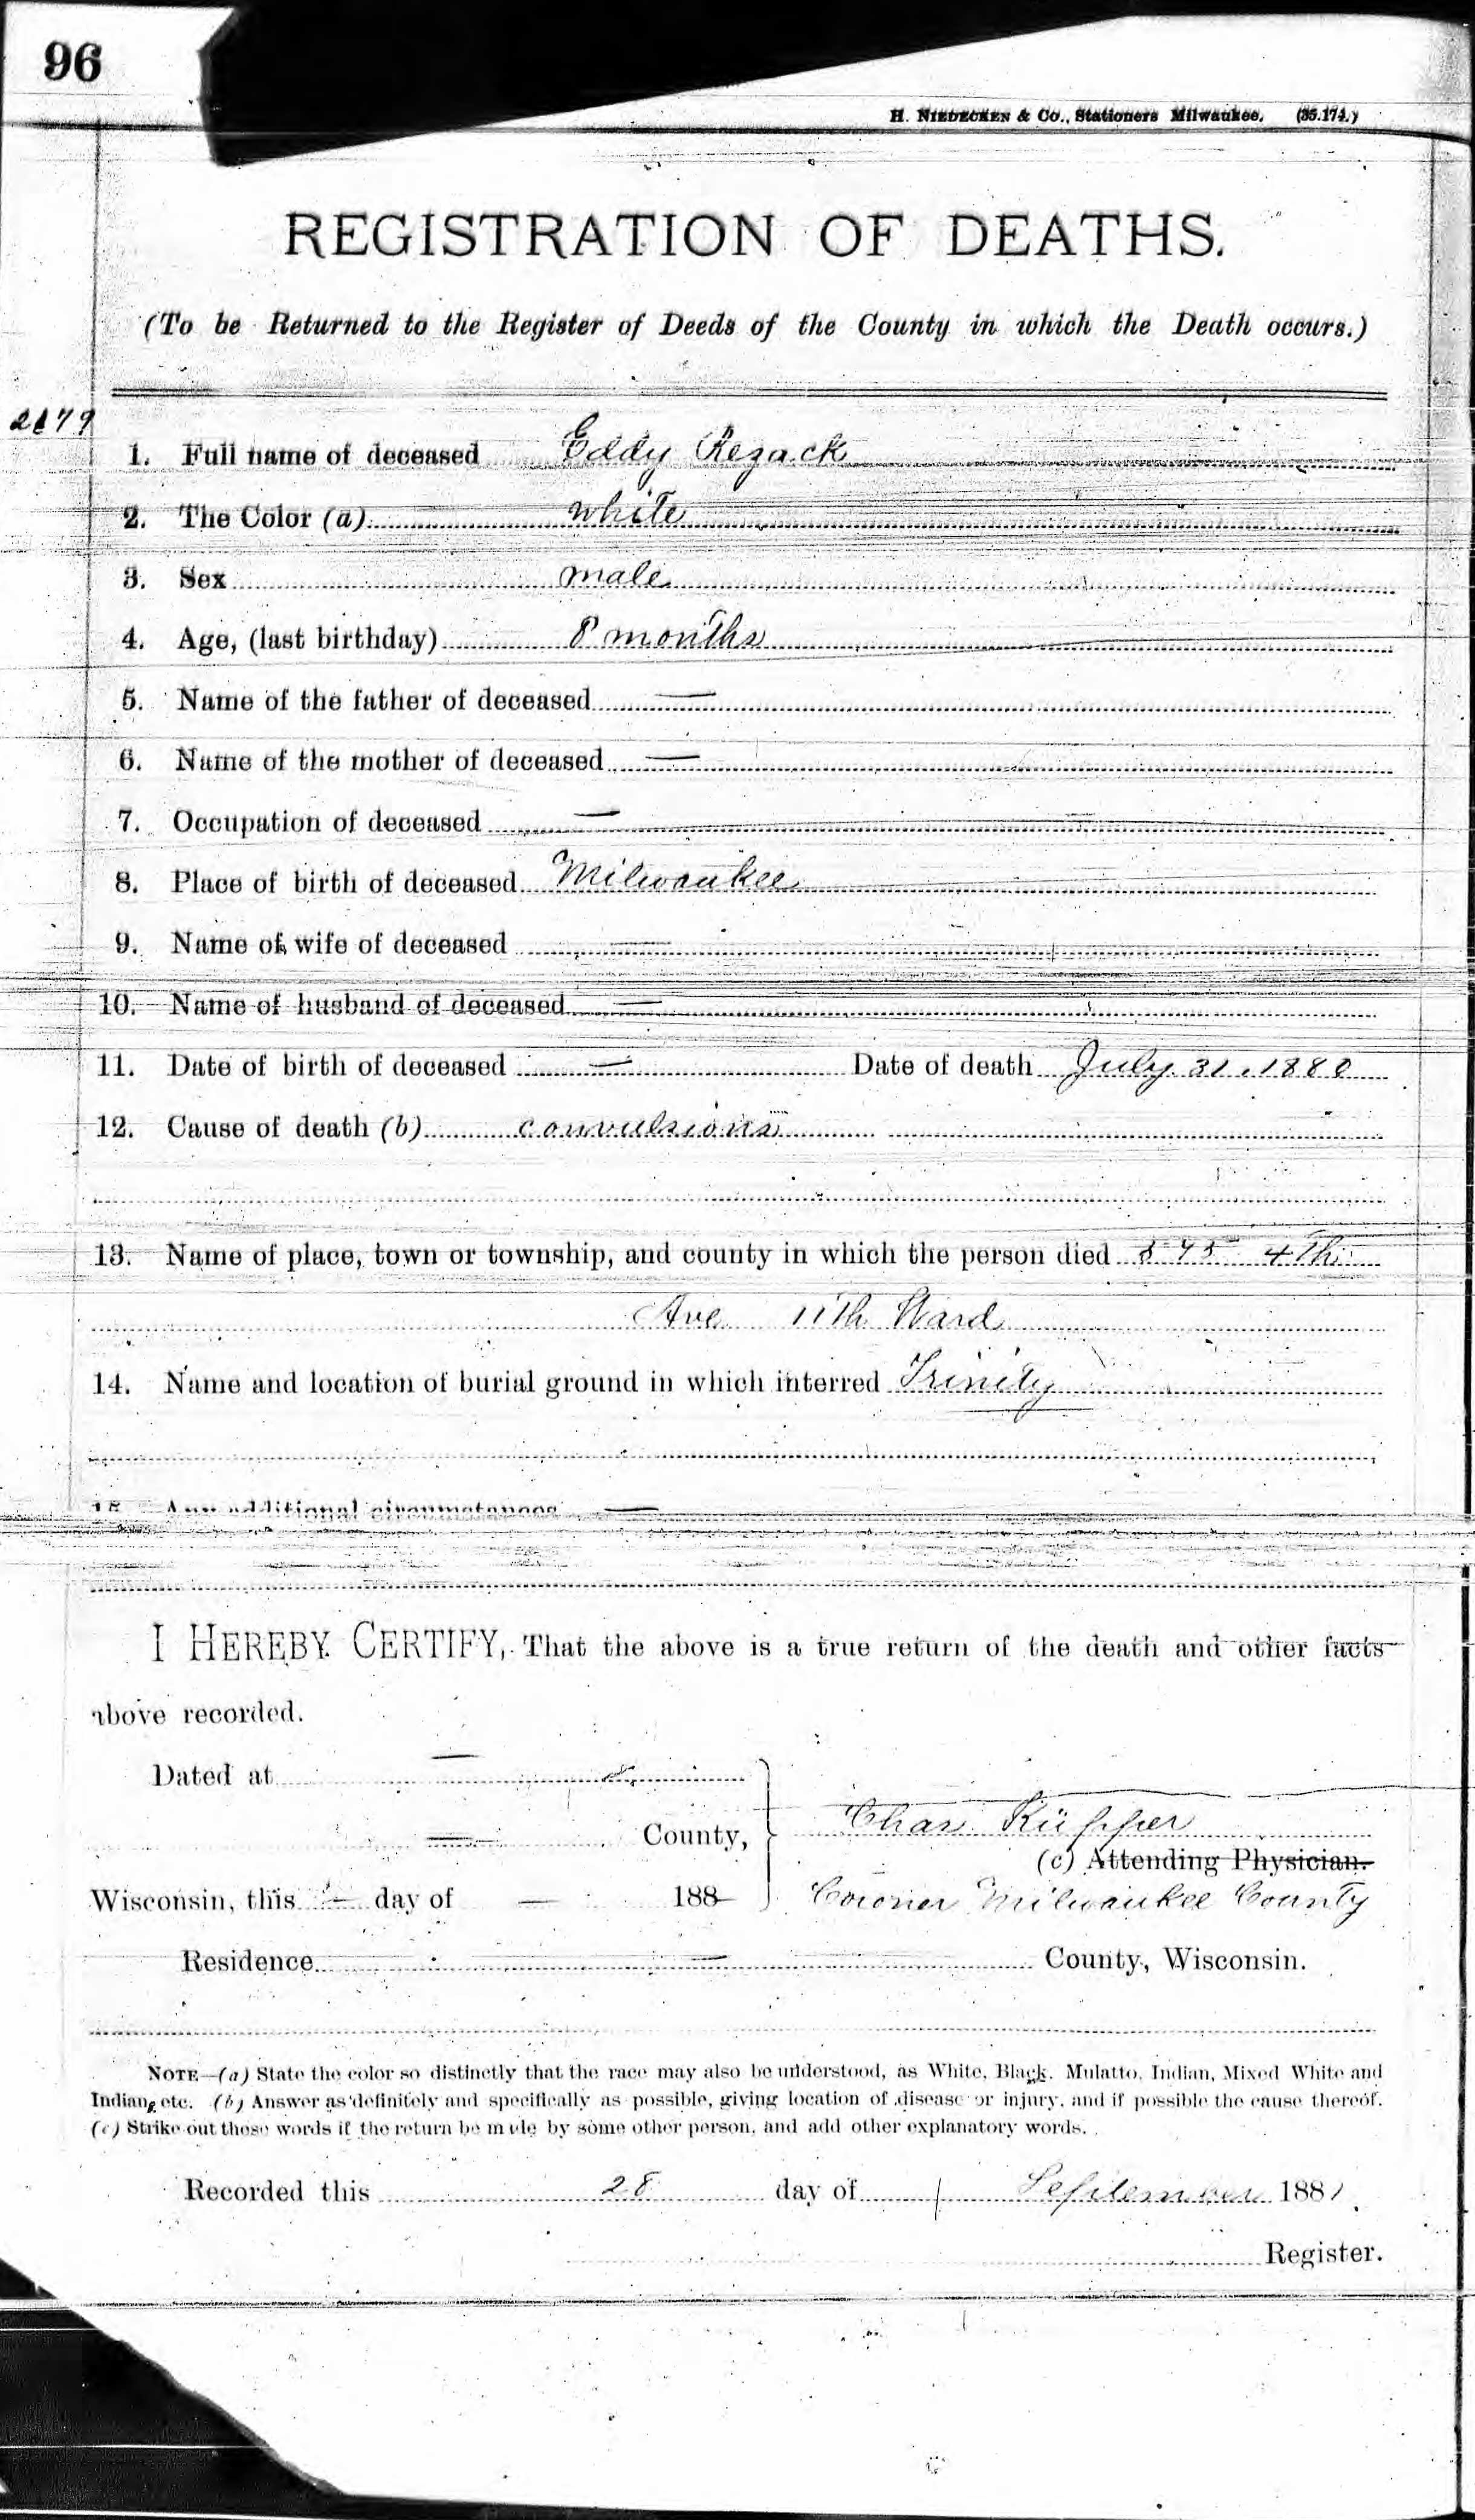 96
H. NIEDECKEN & CO., Stationers Milwaukee. (35.174.)
REGISTRATION OF DEATHS.
(To be Returned to the Register of Deeds of the County in which the Death occurs.)
1. Full name of deceased Eddy Rezack
2. The Color (a) White
3. Sex male
4. Age, (last birthday) 8 months
5. Name of the father of deceased —
6. Name of the mother of deceased —
7. Occupation of deceased —
8. Place of birth of deceased Milwaukee
9. Name of wife of deceased —
10. Name of husband of deceased —
11. Date of birth of deceased — Date of death July 31, 1880
12. Cause of death (b) convulsions
13. Name of place, town or township, and county in which the person died 4th
Ave 11th Ward
14. Name and location of burial ground in which interred Trinity
15. Any additional circumstances —
I HEREBY CERTIFY, That the above is a true return of the death and other facts
above recorded.
Dated at —
— County,
Chas Küpper
(c) Attending Physician.
Wisconsin, this — day of — 188— Coroner Milwaukee County
Residence — County, Wisconsin.
NOTE—(a) State the color so distinctly that the race may also be understood, as White, Black, Mulatto, Indian, Mixed White and
Indian, etc. (b) Answer as definitely and specifically as possible, giving location of disease or injury, and if possible the cause thereof.
(c) Strike out these words if the return be made by some other person, and add other explanatory words.
Recorded this 28 day of September 1881.
Register.